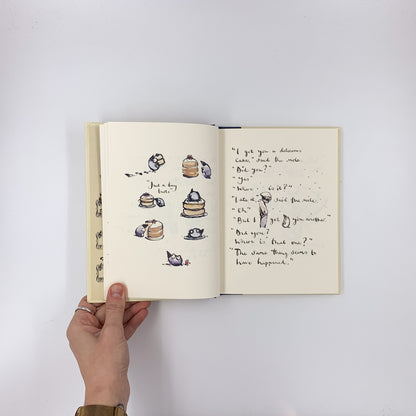 "Just a tiny
taste"
"I got you a delicious
cake," said the mole.
"Did you?"
"Yes"
"Where is it?"
"I ate it" said the mole.
"Oh"
"But I got you another"
"Did you?
Where is that one?"
"The same thing seems to
have happened."